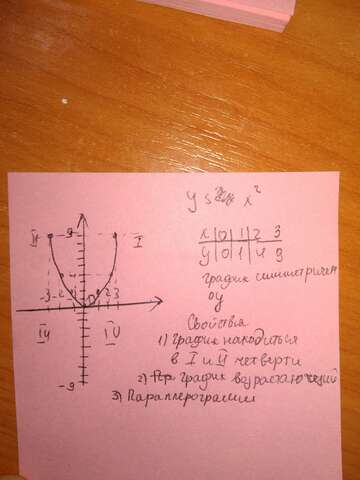 y = x²
x | 0 | 1 | 2 3
y | 0 | 1 | 4 9
график симметричен
оу
Свойства
1) график находиться
в I и II четверти
2) график возрастающий
3) Параллерограмм
II 9 I
4
-3 -2 1 2 3
IV
-9